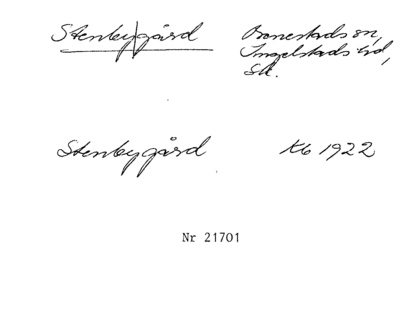 Stenby|gård Bonestads sn,
Ingelstads hd,
Sk.
Stenbygård Kb 1922
Nr 21701